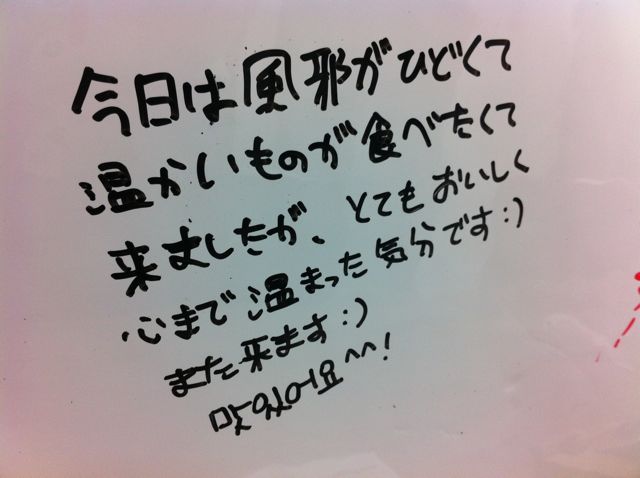 今日は風邪がひどくて
温かいものが食べたくて
来ましたが、とてもおいしく
心まで温まった気分です:)
また来ます:)
맛있어요^^!